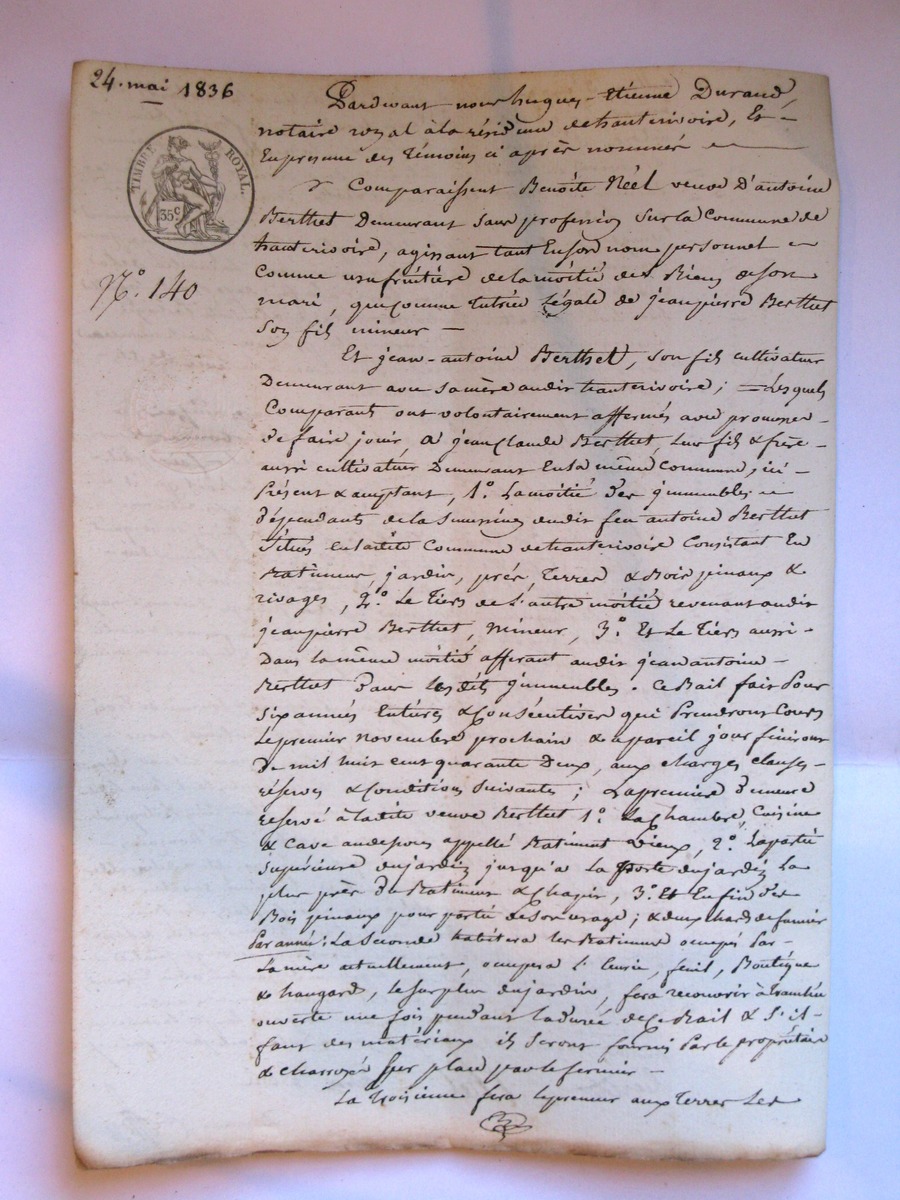 24. mai 1836
TIMBRE ROYAL.
35c
N.º 140
Pardevant nous hugues-Etienne Durand,
notaire royal à la résidence de hauterivoire, Et
En presence des Témoins ci après nommés
Comparaissent Benoîte Néel veuve D'antoine
Berthet Demeurant Sans profession Sur la Commune de
hauterivoire, agissant tant En son nom personnel
Comme usufruitière de la moitié des Biens de son
mari, que comme tutrice Légale de jeanpierre Berthet
Son fils mineur —
Et jean-antoine Berthet, son fils cultivateur
Demeurant avec sa mère audit hauterivoire; Lesquels
Comparants ont volontairement affermés avec promesse
de faire jouir, a jean Claude Berthet, leur fils & frère
aussi cultivateur Demeurant En la même Commune, ici
Présent & acceptant, 1.º La moitié des jmmeubles
dépendants de la Succession dudit feu antoine Berthet
Situés en ladite Commune de hauterivoire Consistant En
Batiments, jardin, prés, Terres & Bois pinaux &
rivages, 2.º Le Tiers de L'autre moitié revenant audit
jeanpierre Berthet, Mineur, 3.º Et Le Tiers aussi
Dans la même moitié afferant audit jean antoine
Berthet dans lesdits jmmeubles. Ce Bail fait Pour
Six années Entières & Consécutives qui Prendront Cours
Le premier novembre prochain & a pareil jour finiront
De mil huit cent quarante Deux, aux charges clauses
réserves & Conditions Suivantes; La premiere Demeure
reservé à ladite veuve Berthet 1.º La Chambre Cuisine
& Cave audessous appellé Batiment Vieux, 2.º La partie
Supérieure du jardin jusqu'a La porte du jardin La
plus près du Batiment & Chapit, 3.º Et Enfin des
Bois pinaux pour porté de son usage; & deux chards de fumier
Par année: La Seconde habitera les Batiments occupés Par
La mère actuellement, occupera L'écurie, fenil, Boutique
& hangard, le surplus du jardin, fera recouvrir à
ouverte une fois pendant la durée de Ce Bail & S'il
faut des matériaux ils Seront fournis Par le propriétaire
& charroyés Sur place par le fermier —
La Troisieme fera le preneur aux Terres Les